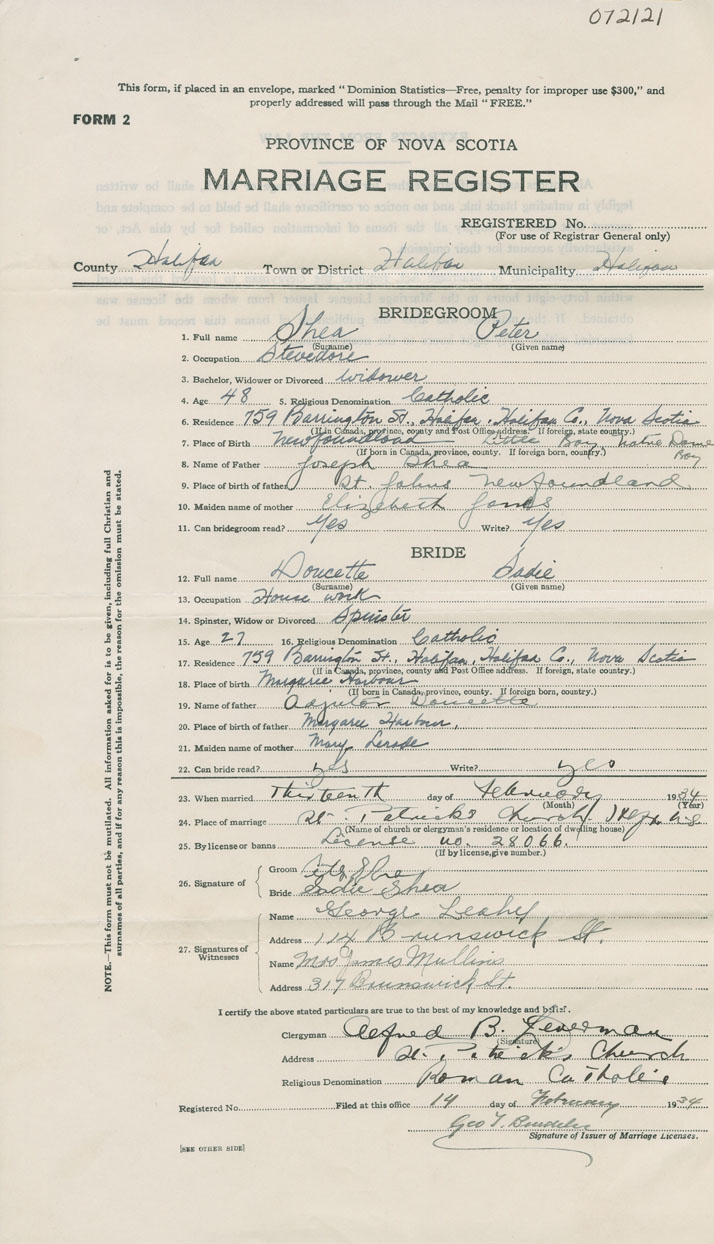 072121
This form, if placed in an envelope, marked "Dominion Statistics—Free, penalty for improper use $300," and
properly addressed will pass through the Mail "FREE."
FORM 2
PROVINCE OF NOVA SCOTIA
MARRIAGE REGISTER
REGISTERED No.
(For use of Registrar General only)
County Halifax Town or District Halifax Municipality Halifax
BRIDEGROOM
1. Full name Shea Peter
(Surname) (Given name)
2. Occupation Stevedore
3. Bachelor, Widower or Divorced Widower
4. Age 48 5. Religious Denomination Catholic
6. Residence 759 Barrington St., Halifax, Halifax Co., Nova Scotia
(If in Canada, province, county and Post Office address. If foreign, state country.)
7. Place of Birth Newfoundland Little Bay Notre Dame Bay
(If born in Canada, province, county. If foreign born, country.)
8. Name of Father Joseph Shea
9. Place of birth of father St. Johns Newfoundland
10. Maiden name of mother Elizabeth Jones
11. Can bridegroom read? Yes Write? Yes
BRIDE
12. Full name Doucette Sadie
(Surname) (Given name)
13. Occupation House work
14. Spinster, Widow or Divorced Spinster
15. Age 27 16. Religious Denomination Catholic
17. Residence 759 Barrington St., Halifax, Halifax Co., Nova Scotia
(If in Canada, province, county and Post Office address. If foreign, state country.)
18. Place of birth Margaree Harbour
(If born in Canada, province, county. If foreign born, country.)
19. Name of father Doucette
20. Place of birth of father Margaree Harbour,
21. Maiden name of mother Mary
22. Can bride read? yes Write? yes
23. When married Thirteenth day of February 1934
(Month) (Year)
24. Place of marriage St. Patricks Church, Hfx N.S.
(Name of church or clergyman's residence or location of dwelling house)
25. By license or banns License no. 28066.
(If by license, give number.)
26. Signature of
Groom Shea
Bride Sadie Shea
27. Signatures of Witnesses
Name George Leahy
Address 114 Brunswick St.
Name Mrs James Mullins
Address 317 Brunswick St.
I certify the above stated particulars are true to the best of my knowledge and belief.
Clergyman Alfred B.
(Signature)
Address St. Patrick's Church
Religious Denomination Roman Catholic
Registered No. Filed at this office 14 day of February 1934
Geo T.
Signature of Issuer of Marriage Licenses.
[SEE OTHER SIDE]
NOTE.—This form must not be mutilated. All information asked for is to be given, including full Christian and
surnames of all parties, and if for any reason this is impossible, the reason for the omission must be stated.